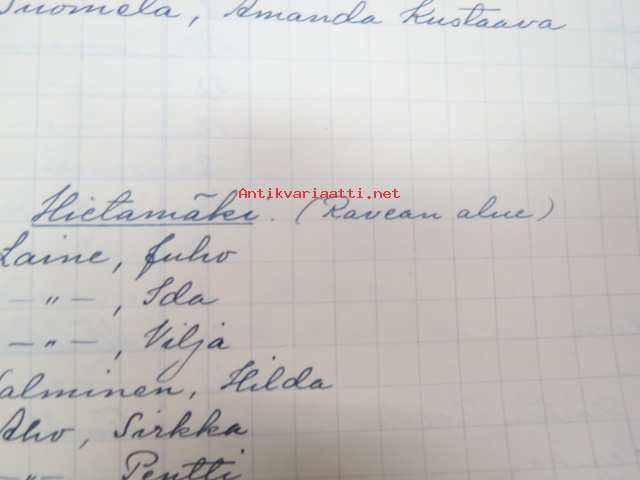 Suomela, Amanda Kustaava
Antikvariaatti.net
Hietamäki. (Ravean alue)
Laine, Juho
— " — , Ida
— " — , Vilja
Salminen, Hilda
Aho, Sirkka
— " — Pentti